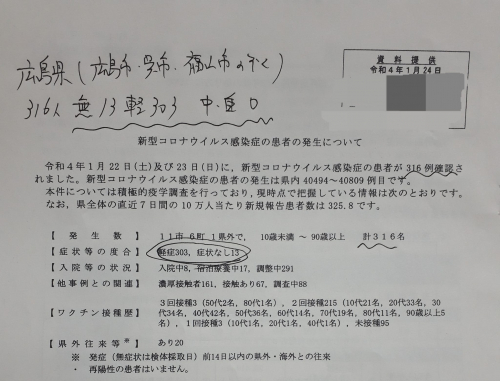 広島県(広島市・呉市・福山市のぞく)
316人 無13 軽303 中・重0
資料提供
令和4年1月24日
新型コロナウイルス感染症の患者の発生について
令和4年1月22日(土)及び23日(日)に,新型コロナウイルス感染症の患者が316例確認さ
れました。新型コロナウイルス感染症の患者の発生は県内40494~40809例目です。
本件については積極的疫学調査を行っており,現時点で把握している情報は次のとおりです。
なお,県全体の直近7日間の10万人当たり新規報告患者数は325.8です。
【発生数】 11市6町1県外で, 10歳未満 ~ 90歳以上 計316名
【症状等の度合】 軽症303,症状なし13
【入院等の状況】 入院中8,宿泊療養中17,調整中291
【他事例との関連】 濃厚接触者161,接触あり67,調査中88
3回接種3(50代2名,80代1名),2回接種215(10代21名,20代33名,30
【ワクチン接種歴】 代34名,40代42名,50代36名,60代14名,70代19名,80代11名,90歳以上5
名),1回接種3(10代1名,20代1名,40代1名),未接種95
【県外往来等※】 あり20
※ 発症(無症状は検体採取日)前14日以内の県外・海外との往来
・ 再陽性の患者はいません。